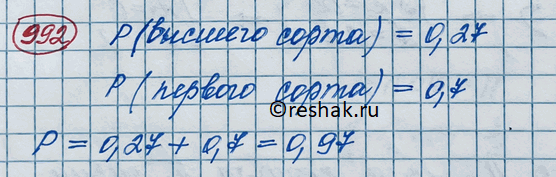 992 P(высшего сорта) = 0,27
P(первого сорта) = 0,7
©reshak.ru
P = 0,27 + 0,7 = 0,97